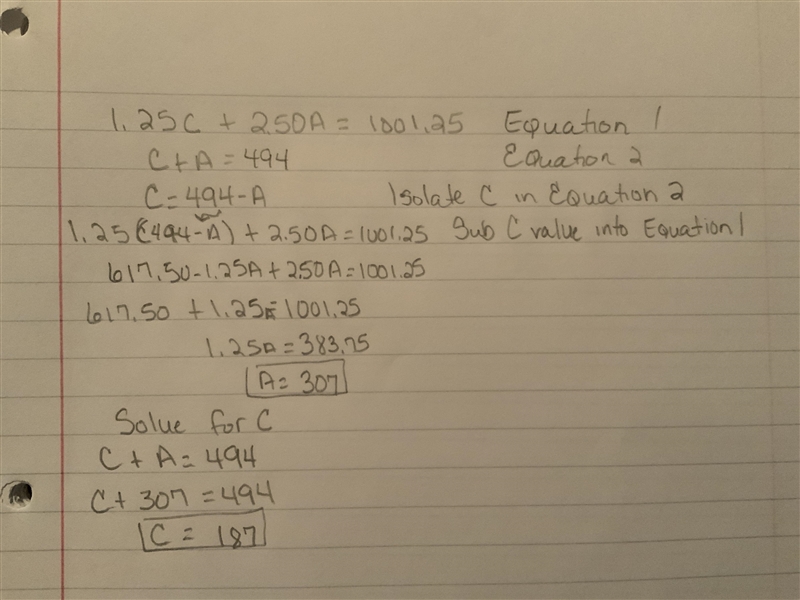 1.25C + 2.50A = 1001.25 Equation 1
C + A = 494 Equation 2
C = 494 - A Isolate C in Equation 2
1.25(494-A) + 2.50A = 1001.25 Sub C value into Equation 1
617.50 - 1.25A + 2.50A = 1001.25
617.50 + 1.25A = 1001.25
1.25A = 383.75
A = 307
Solve for C
C + A = 494
C + 307 = 494
C = 187